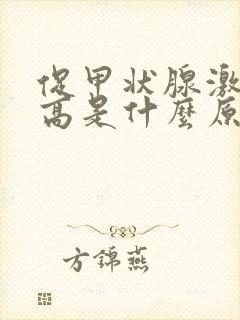 促甲状腺激
高是什麼原
方錦燕